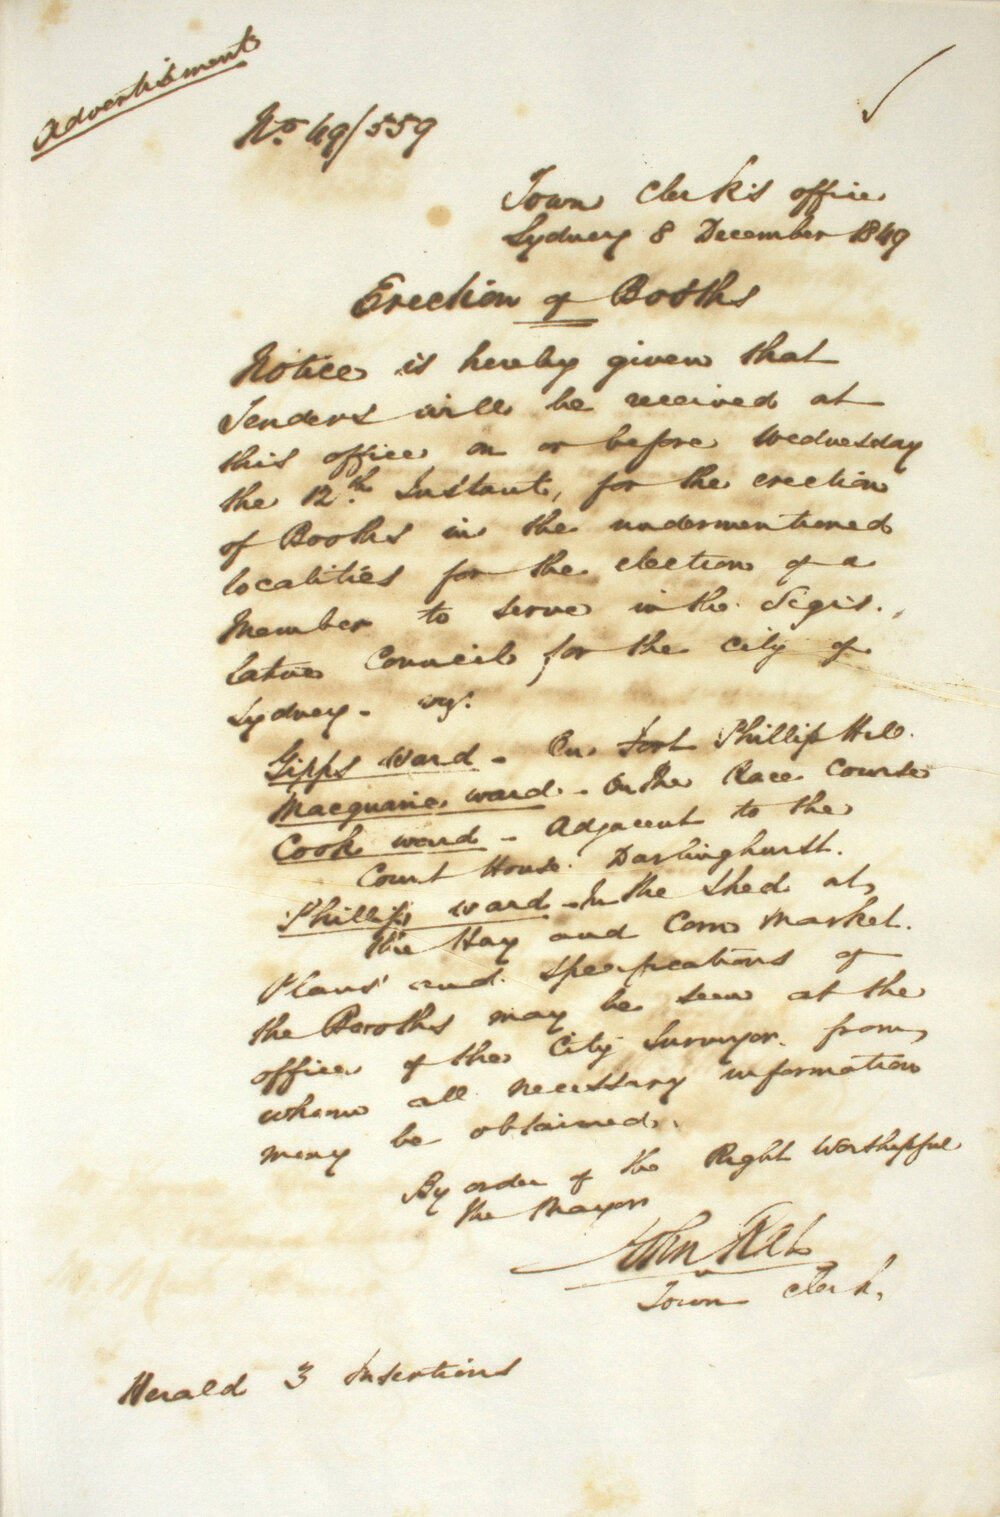 Advertisement
No. 49/559
Town Clerk's office
Sydney 8 December 1849
Erection of Booths
Notice is hereby given that
Tenders will be received at
this office on or before Wednesday
the 12th Instant, for the erection
of Booths in the undermentioned
localities for the election of a
Member to serve in the Legis-
lative Council for the City of
Sydney - viz.
Gipps Ward - On Fort Phillip Hill.
Macquarie ward - On the Race Course
Cook ward - Adjacent to the
Court House Darlinghurst.
Phillip ward - In the Shed at,
the Hay and Corn Market.
Plans and specifications of
the Booths may be seen at the
office of the City Surveyor from
whom all necessary information
may be obtained.
By order of the Right Worshipful
the Mayor
John
Town Clerk.
Herald 3 Insertions